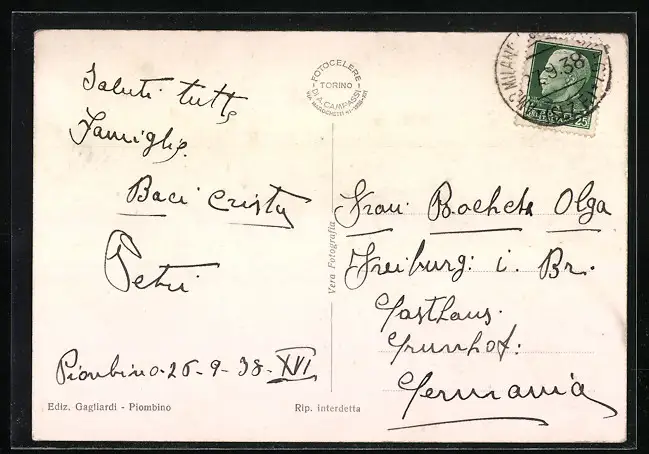 Saluti tutte
Famiglie.
Baci Cristy
Petri
Piombino-26-9-38-XVI
Ediz. Gagliardi - Piombino
Rip. interdetta
Vera Fotografia
FOTOCELERE
TORINO
DI A. CAMPASSI
MILANO
9.38
25
Frau: Rochets Olga
Freiburg: i. Br.
Gasthaus.
Grunhof:
Germania